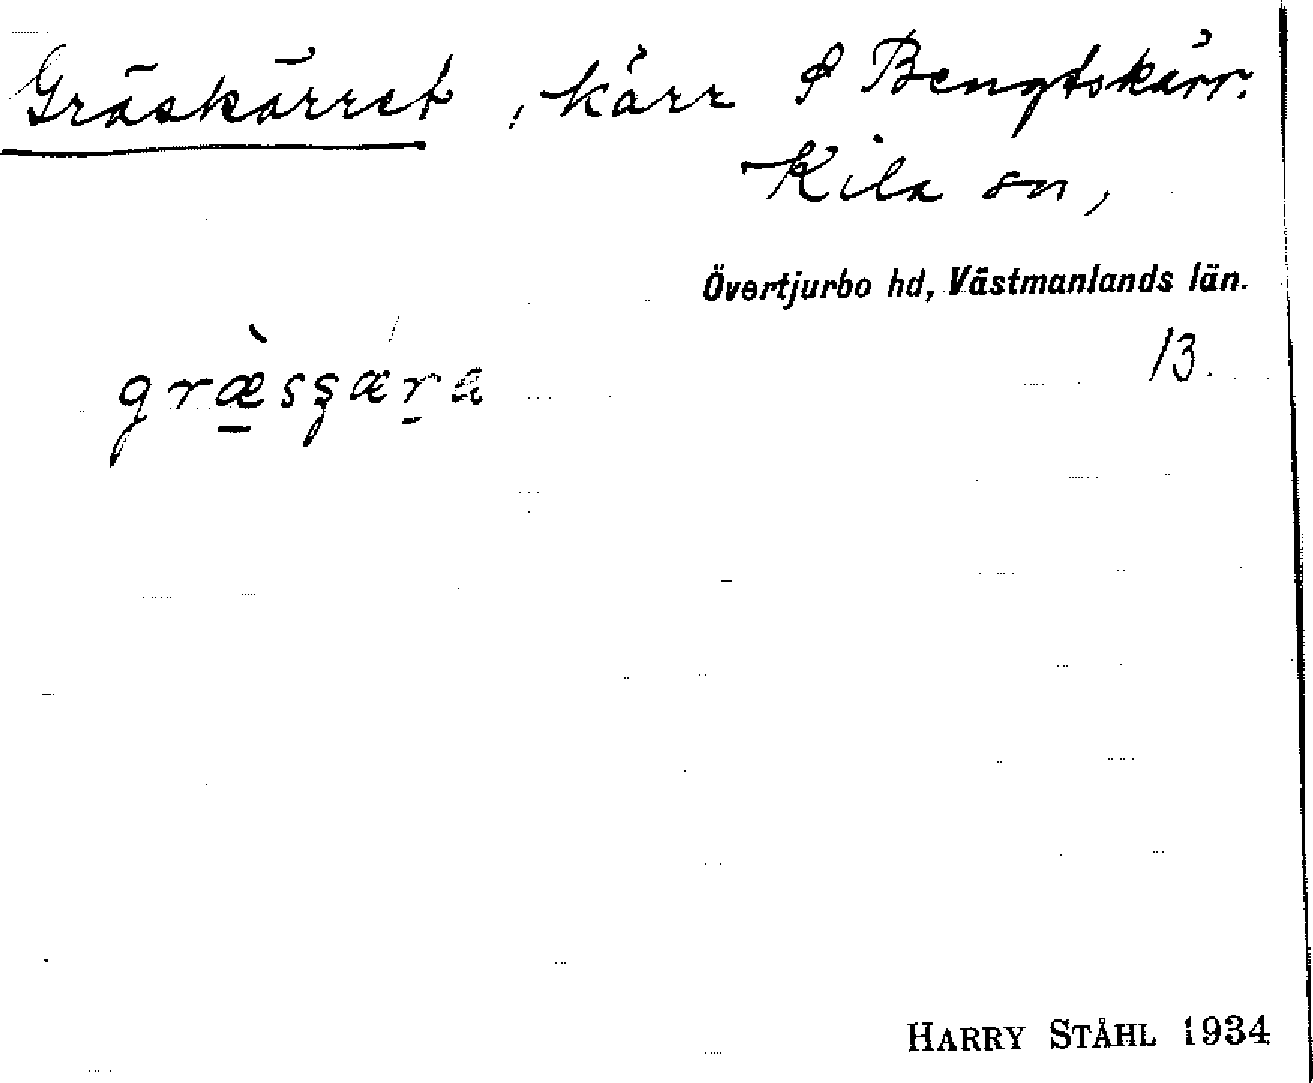 Gräskärret, kärr S Bengtskärr.
Kila sn,
Övertjurbo hd, Västmanlands län.
13.
græ̀sʂæ̀r̠a
HARRY STÅHL 1934